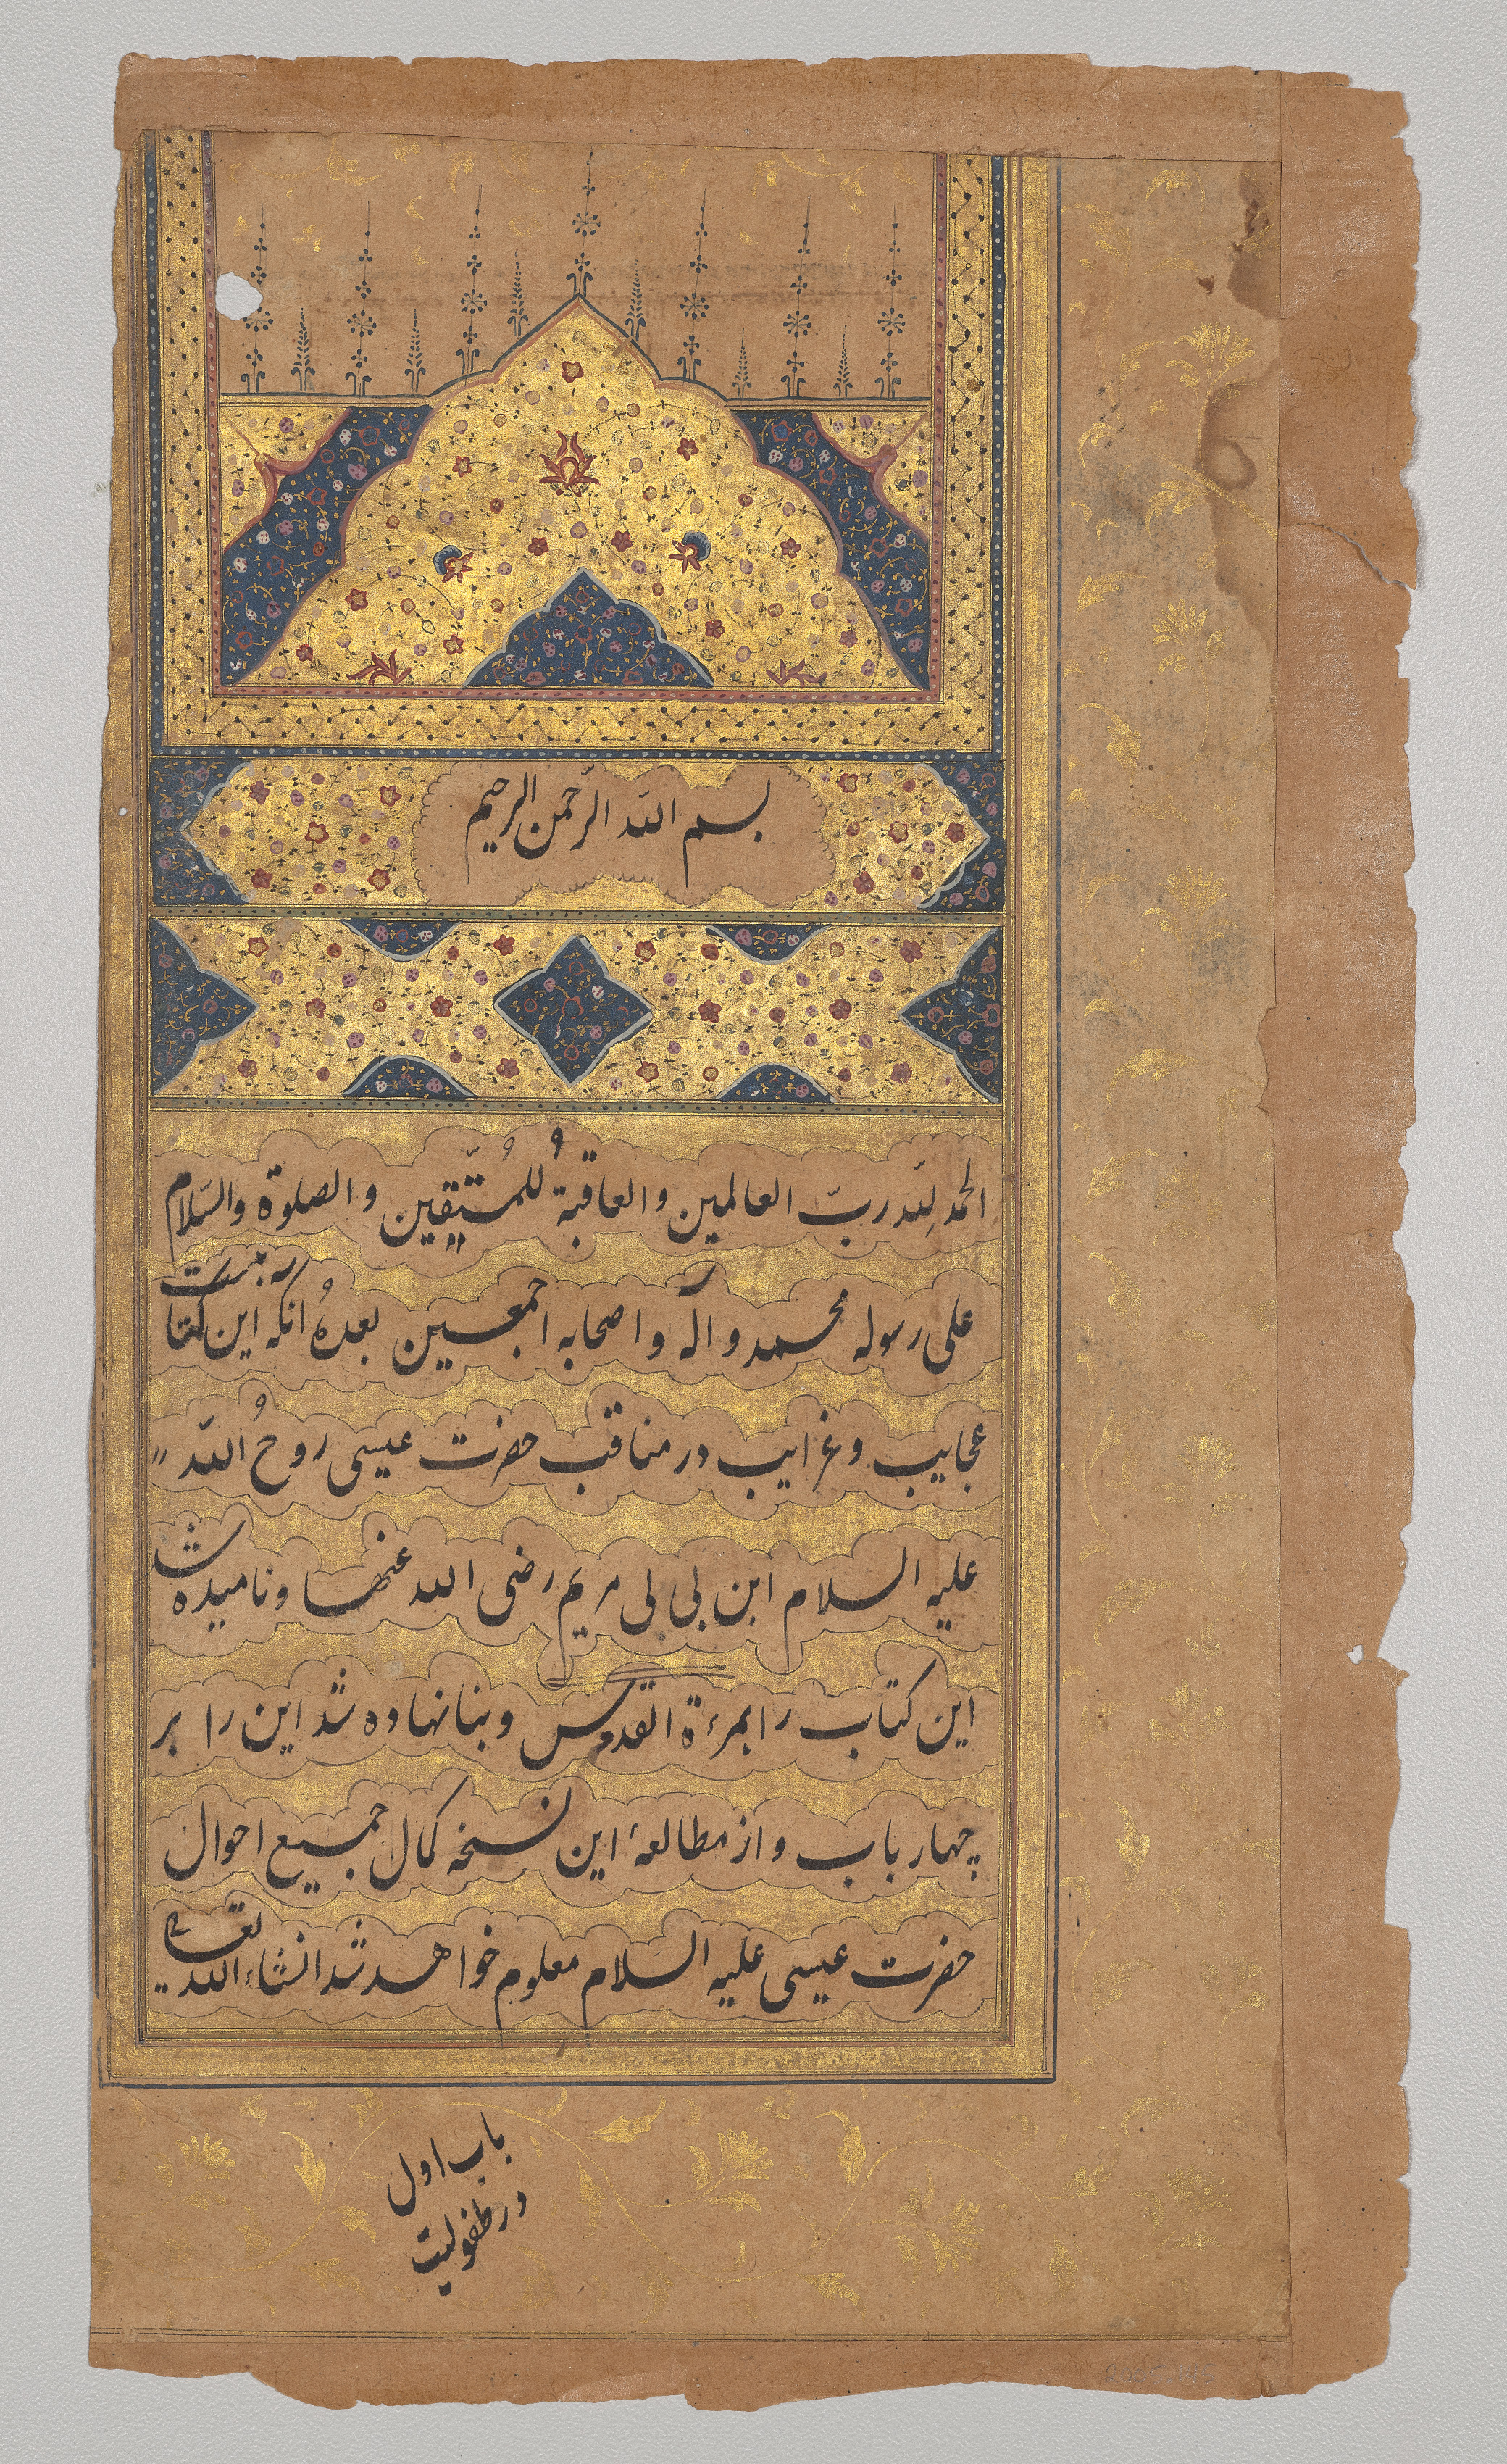 بسم الله الرّحمن الرحيم
الحمد لِلّه ربّ العالمين والعاقبةُ للمُتّيقين والصلوة والسّلام
على رسوله محمد وآله واصحابه اجمعين بعدهُ انکه این کتا
عجایب وغرایب در مناقب حضرت عیسی روحُ اللّه
علیه السلام ابن بی بی مریم رضی الله عنها ونامیده شد
این کتاب را بمرءة القدس وبنا نهاده شد این را بر
چهار باب و از مطالعهٔ این نسخه کمال جمیع احوال
حضرت عیسی علیه السّلام معلوم خواهد شد انشاء الله تعالی
باب اول
در طفولیت